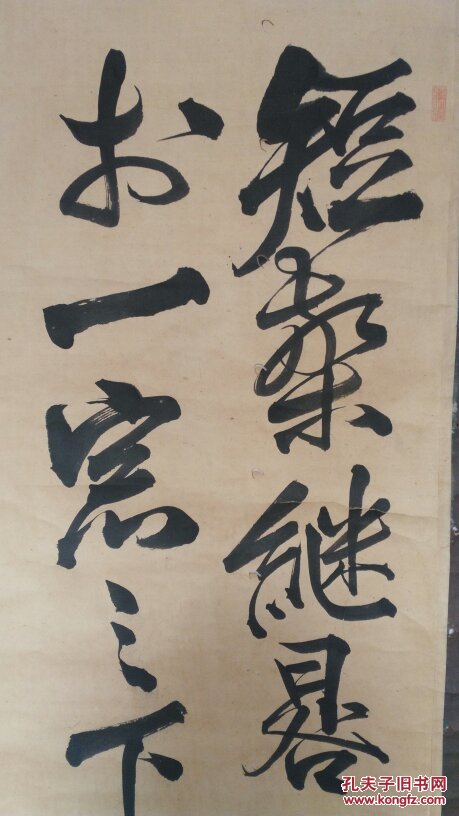 短檠継晷
於一窓之下
孔夫子旧书网
www.kongfz.com